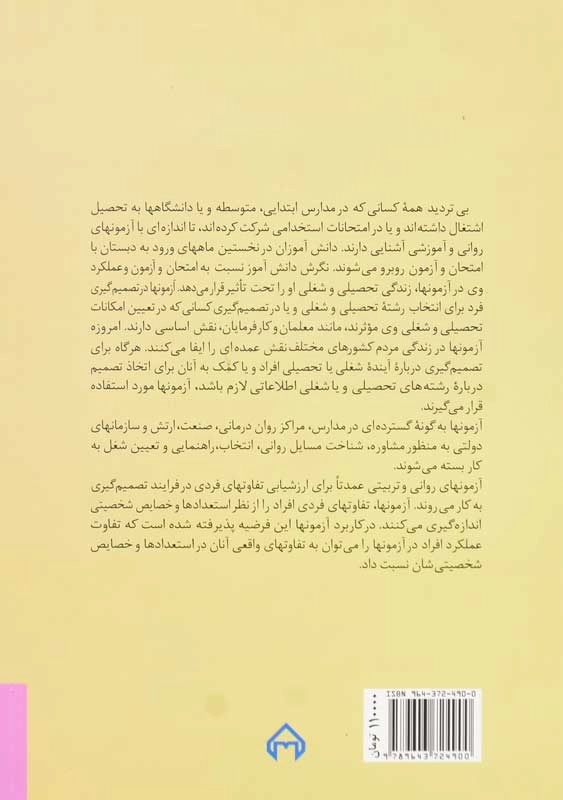 بی تردید همهٔ کسانی که در مدارس ابتدایی، متوسطه و یا دانشگاهها به تحصیل
اشتغال داشته‌اند و یا در امتحانات استخدامی شرکت کرده‌اند، تا اندازه‌ای با آزمونهای
روانی و آموزشی آشنایی دارند. دانش آموزان در نخستین ماههای ورود به دبستان با
امتحان و آزمون روبرو می‌شوند. نگرش دانش آموز نسبت به امتحان و آزمون و عملکرد
وی در آزمونها، زندگی تحصیلی و شغلی او را تحت تأثیر قرار می‌دهد. آزمونها در تصمیم‌گیری
فرد برای انتخاب رشتهٔ تحصیلی و شغلی و یا در تصمیم‌گیری کسانی که در تعیین امکانات
تحصیلی و شغلی وی مؤثرند، مانند معلمان و کارفرمایان، نقش اساسی دارند. امروزه
آزمونها در زندگی مردم کشورهای مختلف نقش عمده‌ای را ایفا می‌کنند. هرگاه برای
تصمیم‌گیری دربارهٔ آیندهٔ شغلی یا تحصیلی افراد و یا کمک به آنان برای اتخاذ تصمیم
دربارهٔ رشته‌های تحصیلی و یا شغلی اطلاعاتی لازم باشد، آزمونها مورد استفاده
قرار می‌گیرند.
آزمونها به گونهٔ گسترده‌ای در مدارس، مراکز روان درمانی، صنعت، ارتش و سازمانهای
دولتی به منظور مشاوره، شناخت مسایل روانی، انتخاب، راهنمایی و تعیین شغل به
کار بسته می‌شوند.
آزمونهای روانی و تربیتی عمدتاً برای ارزشیابی تفاوتهای فردی در فرایند تصمیم‌گیری
به کار می‌روند. آزمونها، تفاوتهای فردی افراد را از نظر استعدادها و خصایص شخصیتی
اندازه‌گیری می‌کنند. در کاربرد آزمونها این فرضیه پذیرفته شده است که تفاوت
عملکرد افراد در آزمونها را می‌توان به تفاوتهای واقعی آنان در استعدادها و خصایص
شخصیتی‌شان نسبت داد.
ISBN 964-372-490-0
9 789643 724900
۱۱۰۰۰۰ تومان